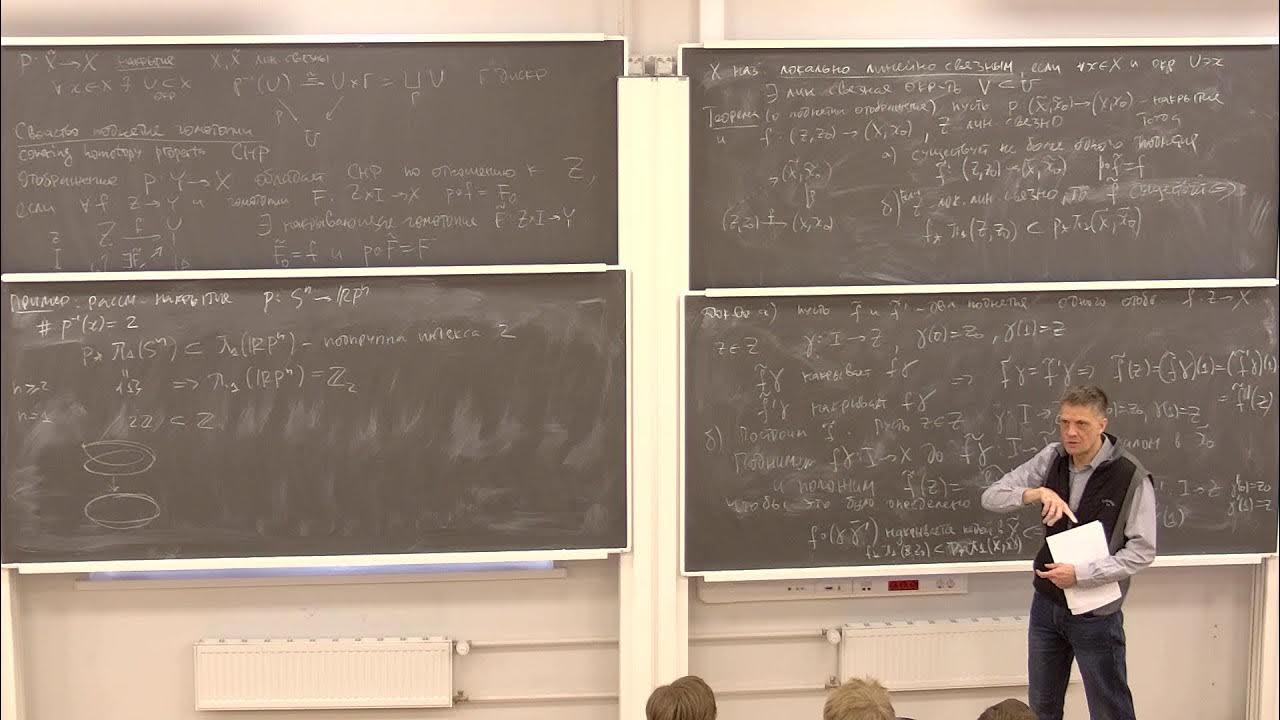 p: X̃ → X накрытие X, X̃ лин. связны
∀ x∈X ∃ U⊂X p⁻¹(U) ≅ U×Γ = ∐ U Γ дискр
окр Γ
p
U
Свойство поднятия гомотопии
covering homotopy property CHP
Отображение p: Y→X обладает CHP по отношению к Z,
если ∀ f: Z→Y и гомотопии F: Z×I→X p∘f = F₀
∃ накрывающая гомотопия F̃: Z×I→Y
F̃₀ = f и p∘F̃ = F
Пример. рассм. накрытие p: Sⁿ → ℝPⁿ
# p⁻¹(x) = 2
p⁎ π₁(Sⁿ) ⊂ π₁(ℝPⁿ) – подгруппа индекса 2
n≥2 {1} ⇒ π₁(ℝPⁿ) = ℤ₂
n=1 2ℤ ⊂ ℤ
X наз. локально линейно связным, если ∀x∈X и окр U∋x
∃ лин. связная окр-ть V⊂U
Теорема (о поднятии отображения) пусть p: (X̃,x̃₀)→(X,x₀) – накрытие
и f: (Z,z₀) → (X,x₀), Z лин. связно Тогда
а) существует не более одного поднятия
f̃: (Z,z₀)→(X̃,x̃₀) p∘f̃ = f
(X̃,x̃₀)
p
б) Если Z лок. лин. связно, то f̃ существует ⇔
(Z,z₀) f→ (X,x₀)
f⁎ π₁(Z,z₀) ⊂ p⁎ π₁(X̃,x̃₀)
Док-во а) пусть f̃ и f̃' – два поднятия одного отобр f: Z→X
z∈Z γ: I→Z, γ(0)=z₀, γ(1)=z
f̃γ накрывает fγ ⇒ f̃γ = f̃'γ ⇒ f̃(z) = (f̃γ)(1) = (f̃'γ)(1)
= f̃'(z)
f̃'γ накрывает fγ
б) Построим f̃. Пусть z∈Z γ: I→
=z₀, γ(1)=z
Поднимем fγ: I→X до f̃γ: I→
в x̃₀
и положим f̃(z) =
I→Z γ'(0)=z₀
чтобы это было определено
γ'(1)=z
f∘(γγ̄') накрывается петлёй в X̃ ⇐
f⁎π₁(Z,z₀) ⊂ p⁎π₁(X̃,x̃₀)